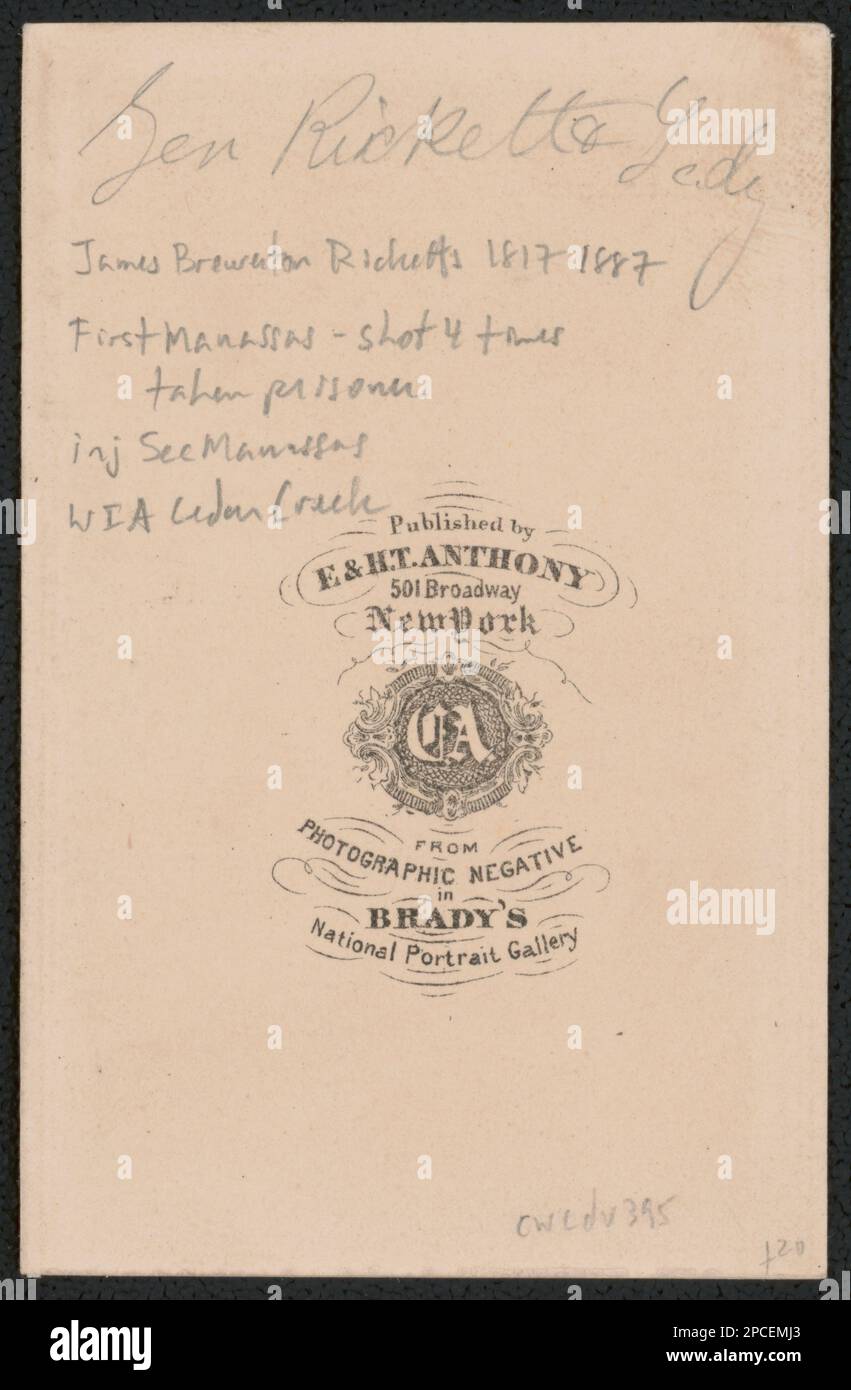 Gen Ricketts & Lady
James Brewerton Ricketts 1817 1887
First Manassas - shot 4 times
taken prisoner
inj Sec Manassas
WIA Cedar Creek
Published by
E & H.T. ANTHONY
501 Broadway
New York
CA
FROM
PHOTOGRAPHIC NEGATIVE
in
BRADY'S
National Portrait Gallery
cwcdv395
+20
a alamy
alamy
Image ID: 2PCEMJ3
www.alamy.com